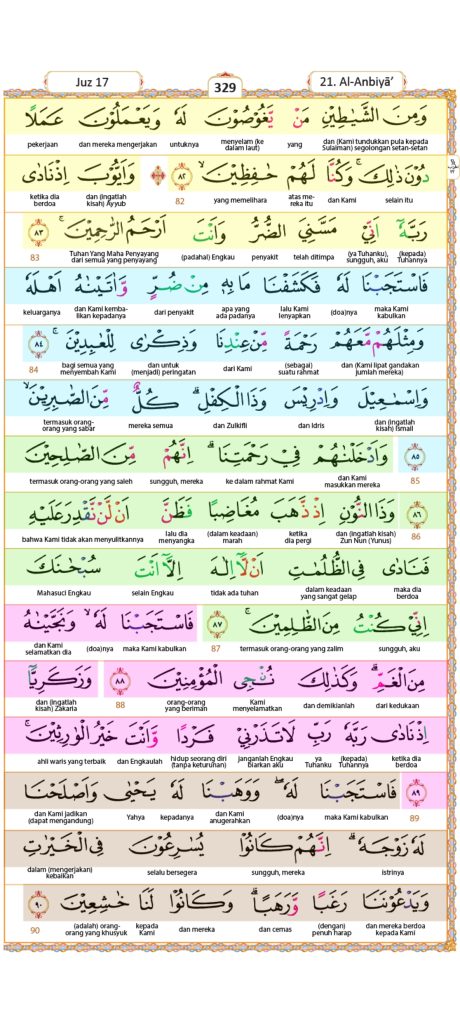 Juz 17
329
21. Al-Anbiyā’
وَمِنَ الشَّيٰطِيْنِ مَنْ يَّغُوْصُوْنَ لَهٗ وَيَعْمَلُوْنَ عَمَلًا
dan (Kami tundukkan pula kepada Sulaiman) segolongan setan-setan yang menyelam (ke dalam laut) untuknya dan mereka mengerjakan pekerjaan
دُوْنَ ذٰلِكَۚ وَكُنَّا لَهُمْ حٰفِظِيْنَۙ ٨٢ وَاَيُّوْبَ اِذْ نَادٰى
selain itu dan Kami atas mereka itu yang memelihara 82 dan (ingatlah kisah) Ayyub ketika dia berdoa
رَبَّهٗٓ اَنِّيْ مَسَّنِيَ الضُّرُّ وَاَنْتَ اَرْحَمُ الرّٰحِمِيْنَۚ ٨٣
(kepada) Tuhannya (ya Tuhanku), sungguh, aku telah ditimpa penyakit (padahal) Engkau Tuhan Yang Maha Penyayang dari semua yang penyayang 83
فَاسْتَجَبْنَا لَهٗ فَكَشَفْنَا مَا بِهٖ مِنْ ضُرٍّ وَّاٰتَيْنٰهُ اَهْلَهٗ
maka Kami kabulkan (doa)nya lalu Kami lenyapkan apa yang ada padanya dari penyakit dan Kami kembalikan kepadanya keluarganya
وَمِثْلَهُمْ مَّعَهُمْ رَحْمَةً مِّنْ عِنْدِنَا وَذِكْرٰى لِلْعٰبِدِيْنَۚ ٨٤
dan (Kami lipat gandakan jumlah mereka) (sebagai) suatu rahmat dari Kami dan untuk (menjadi) peringatan bagi semua yang menyembah Kami 84
وَاِسْمٰعِيْلَ وَاِدْرِيْسَ وَذَا الْكِفْلِۗ كُلٌّ مِّنَ الصّٰبِرِيْنَۙ
dan (ingatlah kisah) Ismail dan Idris dan Zulkifli mereka semua termasuk orang-orang yang sabar
٨٥ وَاَدْخَلْنٰهُمْ فِيْ رَحْمَتِنَاۗ اِنَّهُمْ مِّنَ الصّٰلِحِيْنَ
85 dan Kami masukkan mereka ke dalam rahmat Kami sungguh, mereka termasuk orang-orang yang saleh
٨٦ وَذَا النُّوْنِ اِذْ ذَّهَبَ مُغَاضِبًا فَظَنَّ اَنْ لَّنْ نَّقْدِرَ عَلَيْهِ
86 dan (ingatlah kisah) Zun Nun (Yunus) ketika dia pergi (dalam keadaan) marah lalu dia menyangka bahwa Kami tidak akan menyulitkannya
فَنَادٰى فِى الظُّلُمٰتِ اَنْ لَّآ اِلٰهَ اِلَّآ اَنْتَ سُبْحٰنَكَ
maka dia berdoa dalam keadaan yang sangat gelap tidak ada tuhan selain Engkau Mahasuci Engkau
اِنِّيْ كُنْتُ مِنَ الظّٰلِمِيْنَۚ ٨٧ فَاسْتَجَبْنَا لَهٗۙ وَنَجَّيْنٰهُ
sungguh, aku termasuk orang-orang yang zalim 87 maka Kami kabulkan (doa)nya dan Kami selamatkan dia
مِنَ الْغَمِّۗ وَكَذٰلِكَ نُنْجِى الْمُؤْمِنِيْنَ ٨٨ وَزَكَرِيَّآ
dari kedukaan dan demikianlah Kami menyelamatkan orang-orang yang beriman 88 dan (ingatlah kisah) Zakaria
اِذْ نَادٰى رَبَّهٗ رَبِّ لَا تَذَرْنِيْ فَرْدًا وَّاَنْتَ خَيْرُ الْوٰرِثِيْنَۚ
ketika dia berdoa (kepada) Tuhannya ya Tuhanku janganlah Engkau biarkan aku hidup seorang diri (tanpa keturunan) dan Engkaulah ahli waris yang terbaik
٨٩ فَاسْتَجَبْنَا لَهٗۖ وَوَهَبْنَا لَهٗ يَحْيٰى وَاَصْلَحْنَا
89 maka Kami kabulkan (doa)nya dan Kami anugerahkan kepadanya Yahya dan Kami jadikan (dapat mengandung)
لَهٗ زَوْجَهٗۗ اِنَّهُمْ كَانُوْا يُسٰرِعُوْنَ فِى الْخَيْرٰتِ
istrinya sungguh, mereka selalu bersegera dalam (mengerjakan) kebaikan
وَيَدْعُوْنَنَا رَغَبًا وَّرَهَبًاۗ وَكَانُوْا لَنَا خٰشِعِيْنَ ٩٠
dan mereka berdoa kepada Kami (dengan) penuh harap dan cemas dan mereka kepada Kami (adalah) orang-orang yang khusyuk 90